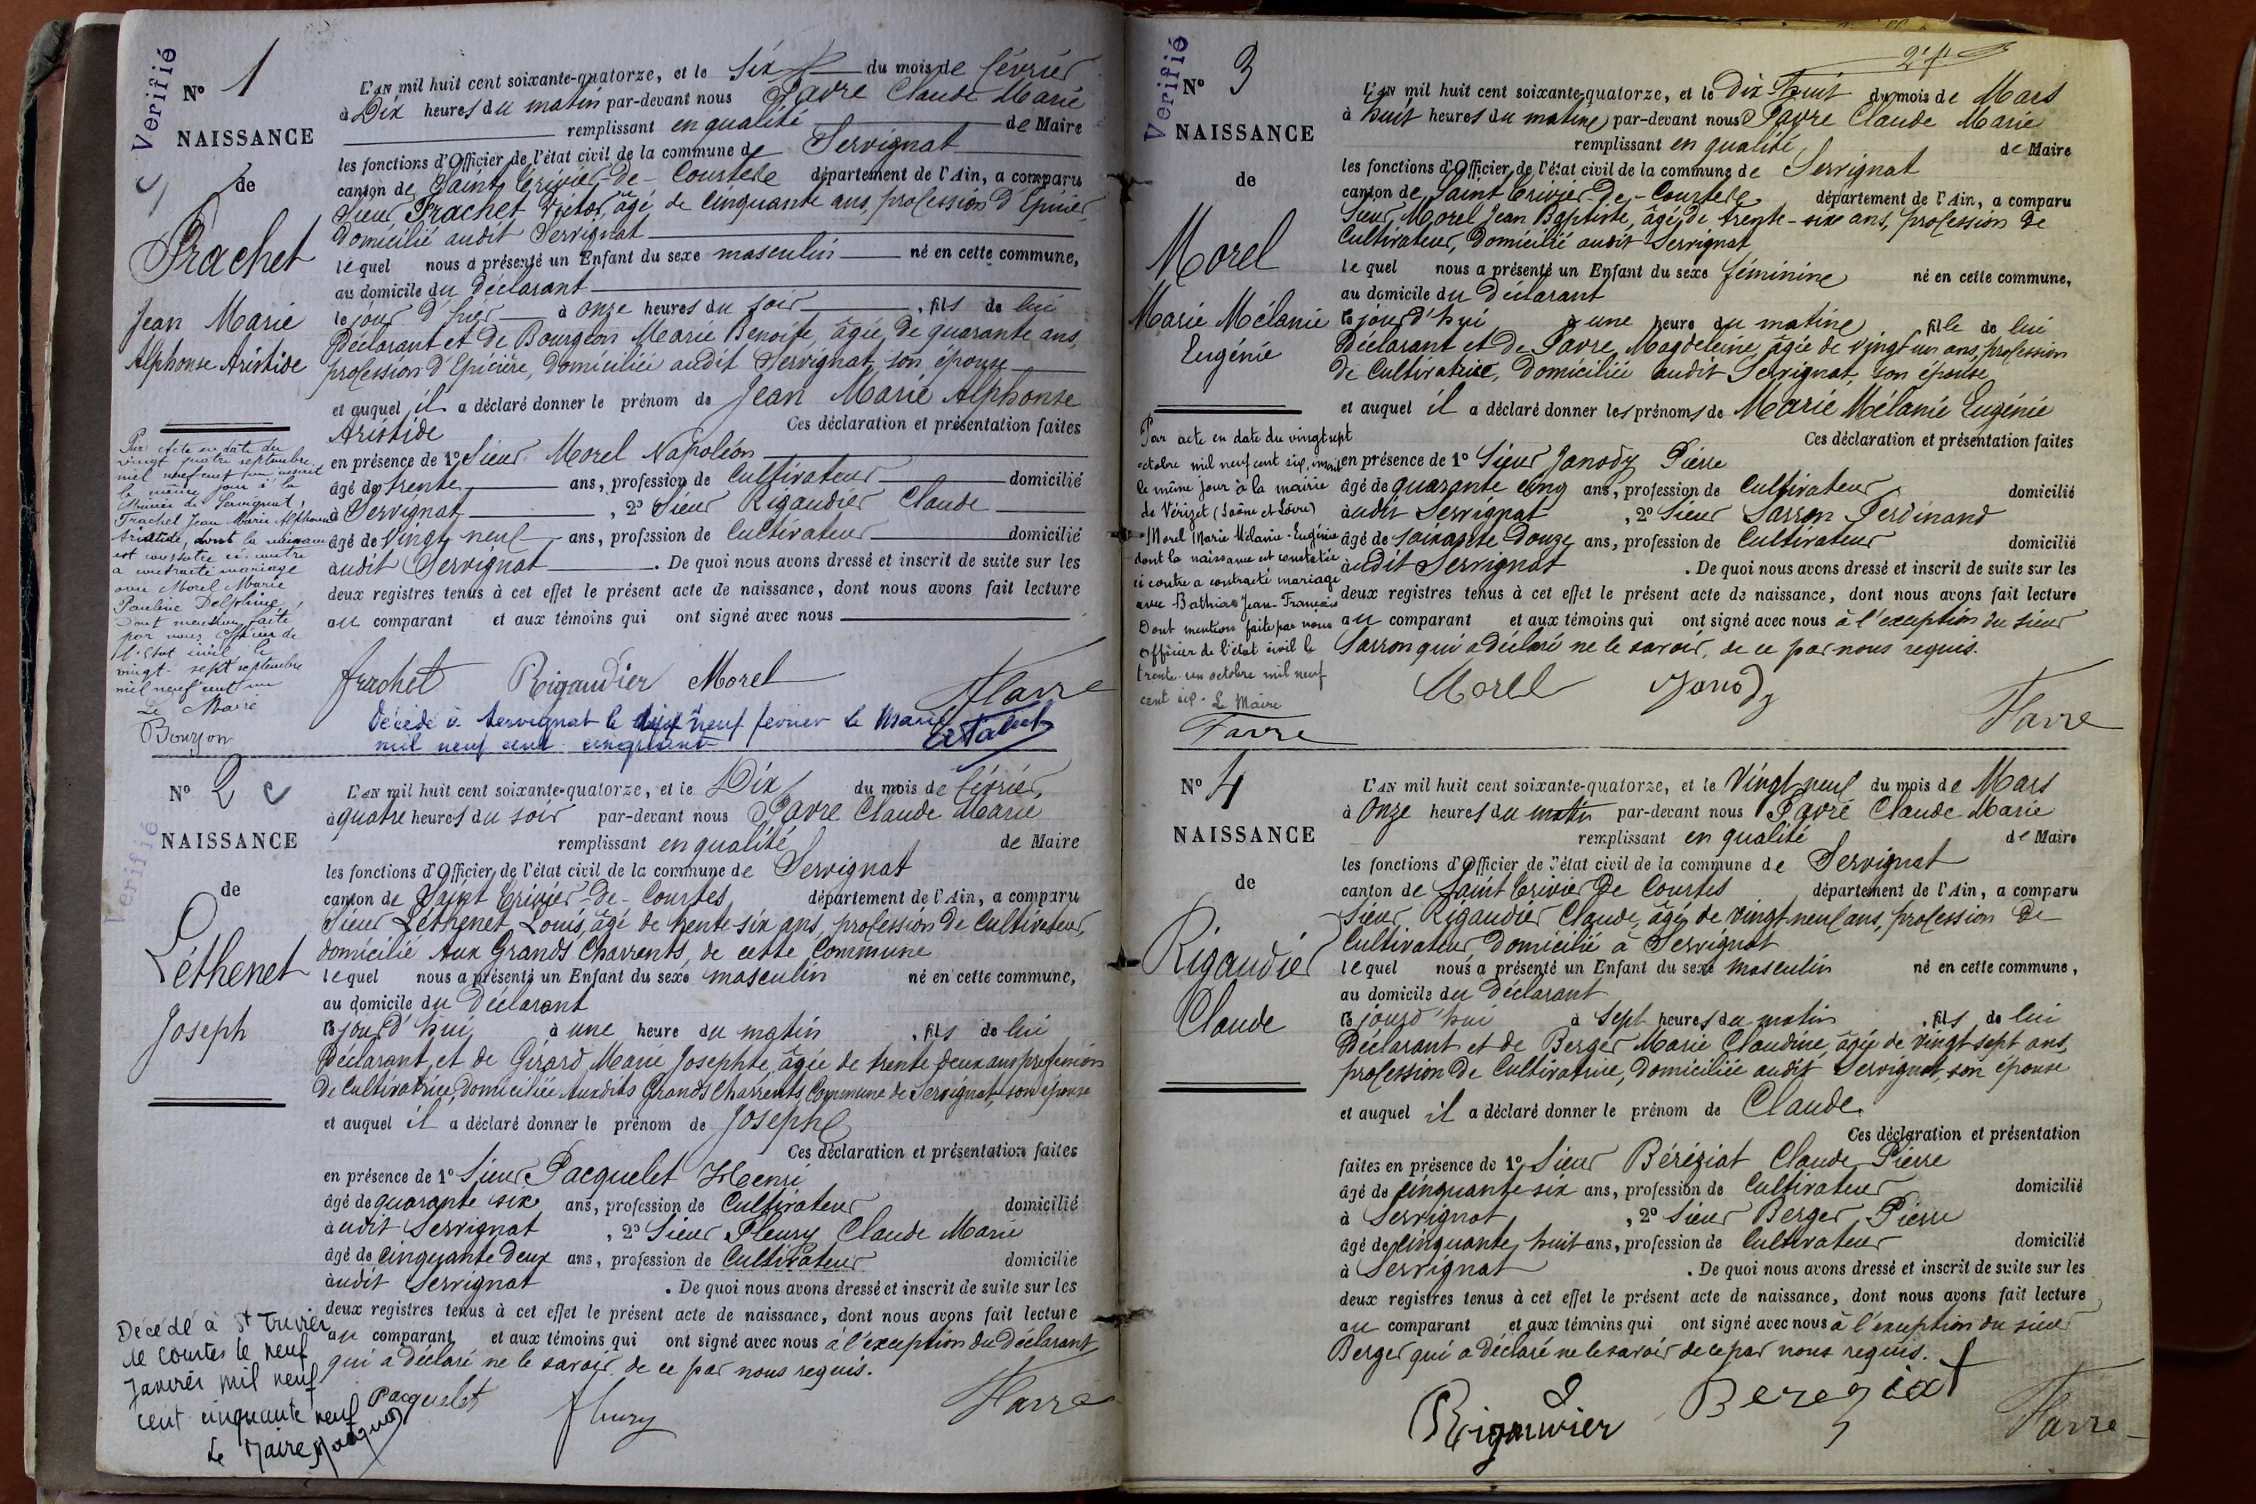 Vérifié
N° 1
NAISSANCE
de
Frachet
Jean Marie
Alphonse Aristide
L'an mil huit cent soixante-quatorze, et le six du mois de février
à Dix heures du matin par-devant nous Favre Claude Marie
remplissant en qualité de Maire
les fonctions d'Officier de l'état civil de la commune de Servignat
canton de Saint Trivier-de-Courtes département de l'Ain, a comparu
Sieur Frachet Victor, âgé de cinquante ans, profession d'Epicier
domicilié audit Servignat
lequel nous a présenté un Enfant du sexe masculin né en cette commune,
au domicile du déclarant
le jour d'hier à onze heures du soir, fils de lui
Déclarant et de Bourgeon Marie Benoite, âgée de quarante ans,
profession d'Epicière, domiciliée audit Servignat, son épouse
et auquel il a déclaré donner le prénom de Jean Marie Alphonse
Aristide Ces déclaration et présentation faites
en présence de 1° Sieur Morel Napoléon
âgé de trente ans, profession de Cultivateur domicilié
à Servignat, 2° Sieur Rigaudier Claude
âgé de vingt neuf ans, profession de Cultivateur domicilié
audit Servignat. De quoi nous avons dressé et inscrit de suite sur les
deux registres tenus à cet effet le présent acte de naissance, dont nous avons fait lecture
au comparant et aux témoins qui ont signé avec nous
Frachet Rigaudier Morel Favre
Décédé à Servignat le dix neuf février le Maire
mil neuf cent cinquante
Par acte en date du
vingt quatre septembre
mil neuf cent un inscrit
le même jour à la
Mairie de Servignat,
Frachet Jean Marie Alphonse
Aristide, dont la naissance
est constatée ci-contre
a contracté mariage
avec Morel Marie
Pauline Delphine,
Dont mention faite
par nous officier de
l'état civil le
vingt-sept septembre
mil neuf cent un
Le Maire
Bourjon
N° 2
Vérifié
NAISSANCE
de
Léthenet
Joseph
L'an mil huit cent soixante-quatorze, et le Dix du mois de février,
à quatre heures du soir par-devant nous Favre Claude Marie
remplissant en qualité de Maire
les fonctions d'Officier de l'état civil de la commune de Servignat
canton de Saint Trivier-de-Courtes département de l'Ain, a comparu
Sieur Léthenet Louis, âgé de trente-six ans, profession de Cultivateur,
domicilié Aux Grands Charrents, de cette Commune
lequel nous a présenté un Enfant du sexe masculin né en cette commune,
au domicile du Déclarant
le jourd'hui à une heure du matin, fils de lui
Déclarant, et de Girard Marie Josephte, âgée de trente deux ans profession
de Cultivatrice, domiciliée Auxdits Grands Charrents Commune de Servignat, son épouse
et auquel il a déclaré donner le prénom de Joseph
Ces déclaration et présentation faites
en présence de 1° Sieur Pacquelet Henri
âgé de quarante six ans, profession de Cultivateur domicilié
audit Servignat, 2° Sieur Fleury Claude Marie
âgé de cinquante deux ans, profession de Cultivateur domicilié
audit Servignat. De quoi nous avons dressé et inscrit de suite sur les
deux registres tenus à cet effet le présent acte de naissance, dont nous avons fait lecture
au comparant et aux témoins qui ont signé avec nous à l'exception du Déclarant
qui a déclaré ne le savoir de ce par nous requis.
Pacquelet Fleury Favre
Décédé à St Trivier
de Courtes le neuf
janvier mil neuf
cent cinquante neuf
Le Maire
24
Vérifié
N° 3
NAISSANCE
de
Morel
Marie Mélanie
Eugénie
L'an mil huit cent soixante-quatorze, et le Dix Huit du mois de Mars
à huit heures du matin par-devant nous Favre Claude Marie
remplissant en qualité de Maire
les fonctions d'Officier de l'état civil de la commune de Servignat
canton de Saint Trivier-de-Courtes département de l'Ain, a comparu
Sieur Morel Jean Baptiste, âgé de trente-six ans, profession de
Cultivateur, Domicilié audit Servignat
lequel nous a présenté un Enfant du sexe féminine né en cette commune,
au domicile du Déclarant
le jourd'hui à une heure du matin, fille de lui
Déclarant et de Favre Magdeleine, âgée de vingt un ans, profession
de Cultivatrice, Domiciliée audit Servignat, son épouse
et auquel il a déclaré donner les prénoms de Marie Mélanie Eugénie
Ces déclaration et présentation faites
en présence de 1° Sieur Janody Pierre
âgé de quarante cinq ans, profession de Cultivateur domicilié
audit Servignat, 2° Sieur Sarron Ferdinand
âgé de soixante Douze ans, profession de Cultivateur domicilié
audit Servignat. De quoi nous avons dressé et inscrit de suite sur les
deux registres tenus à cet effet le présent acte de naissance, dont nous avons fait lecture
au comparant et aux témoins qui ont signé avec nous à l'exception du sieur
Sarron qui a déclaré ne le savoir, de ce par nous requis.
Morel Janody Favre
Par acte en date du vingt sept
octobre mil neuf cent six, inscrit
le même jour à la mairie
de Vérizet (Saône et Loire)
Morel Marie Mélanie-Eugénie
dont la naissance est constatée
ci contre a contracté mariage
avec Bathias Jean-François
Dont mention faite par nous
officier de l'état civil le
trente-un octobre mil neuf
cent six. Le Maire
Favre
N° 4
NAISSANCE
de
Rigaudier
Claude
L'an mil huit cent soixante-quatorze, et le Vingt-neuf du mois de Mars
à Onze heures du matin par-devant nous Favre Claude Marie
remplissant en qualité de Maire
les fonctions d'Officier de l'état civil de la commune de Servignat
canton de Saint Trivier De Courtes département de l'Ain, a comparu
Sieur Rigaudier Claude, âgé de vingt-neuf ans, profession de
Cultivateur, domicilié à Servignat
lequel nous a présenté un Enfant du sexe masculin né en cette commune,
au domicile du Déclarant
le jourd'hui à sept heures du matin, fils de lui
Déclarant et de Berger Marie Claudine, âgée de vingt sept ans,
profession de Cultivatrice, Domiciliée audit Servignat, son épouse
et auquel il a déclaré donner le prénom de Claude.
Ces déclaration et présentation
faites en présence de 1° Sieur Béréziat Claude Pierre
âgé de cinquante six ans, profession de Cultivateur domicilié
à Servignat, 2° Sieur Berger Pierre
âgé de cinquante huit ans, profession de Cultivateur domicilié
à Servignat. De quoi nous avons dressé et inscrit de suite sur les
deux registres tenus à cet effet le présent acte de naissance, dont nous avons fait lecture
au comparant et aux témoins qui ont signé avec nous à l'exception du sieur
Berger qui a déclaré ne le savoir de ce par nous requis.
Rigaudier Bereziat Favre